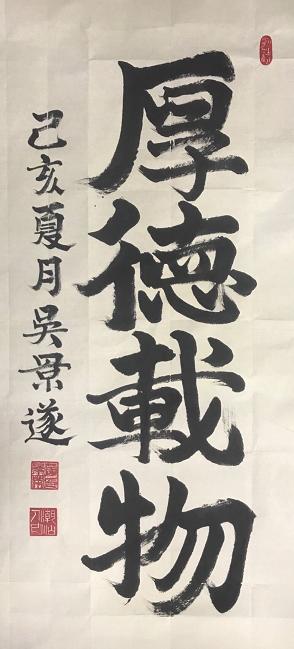 厚德載物
己亥夏月吳景遂